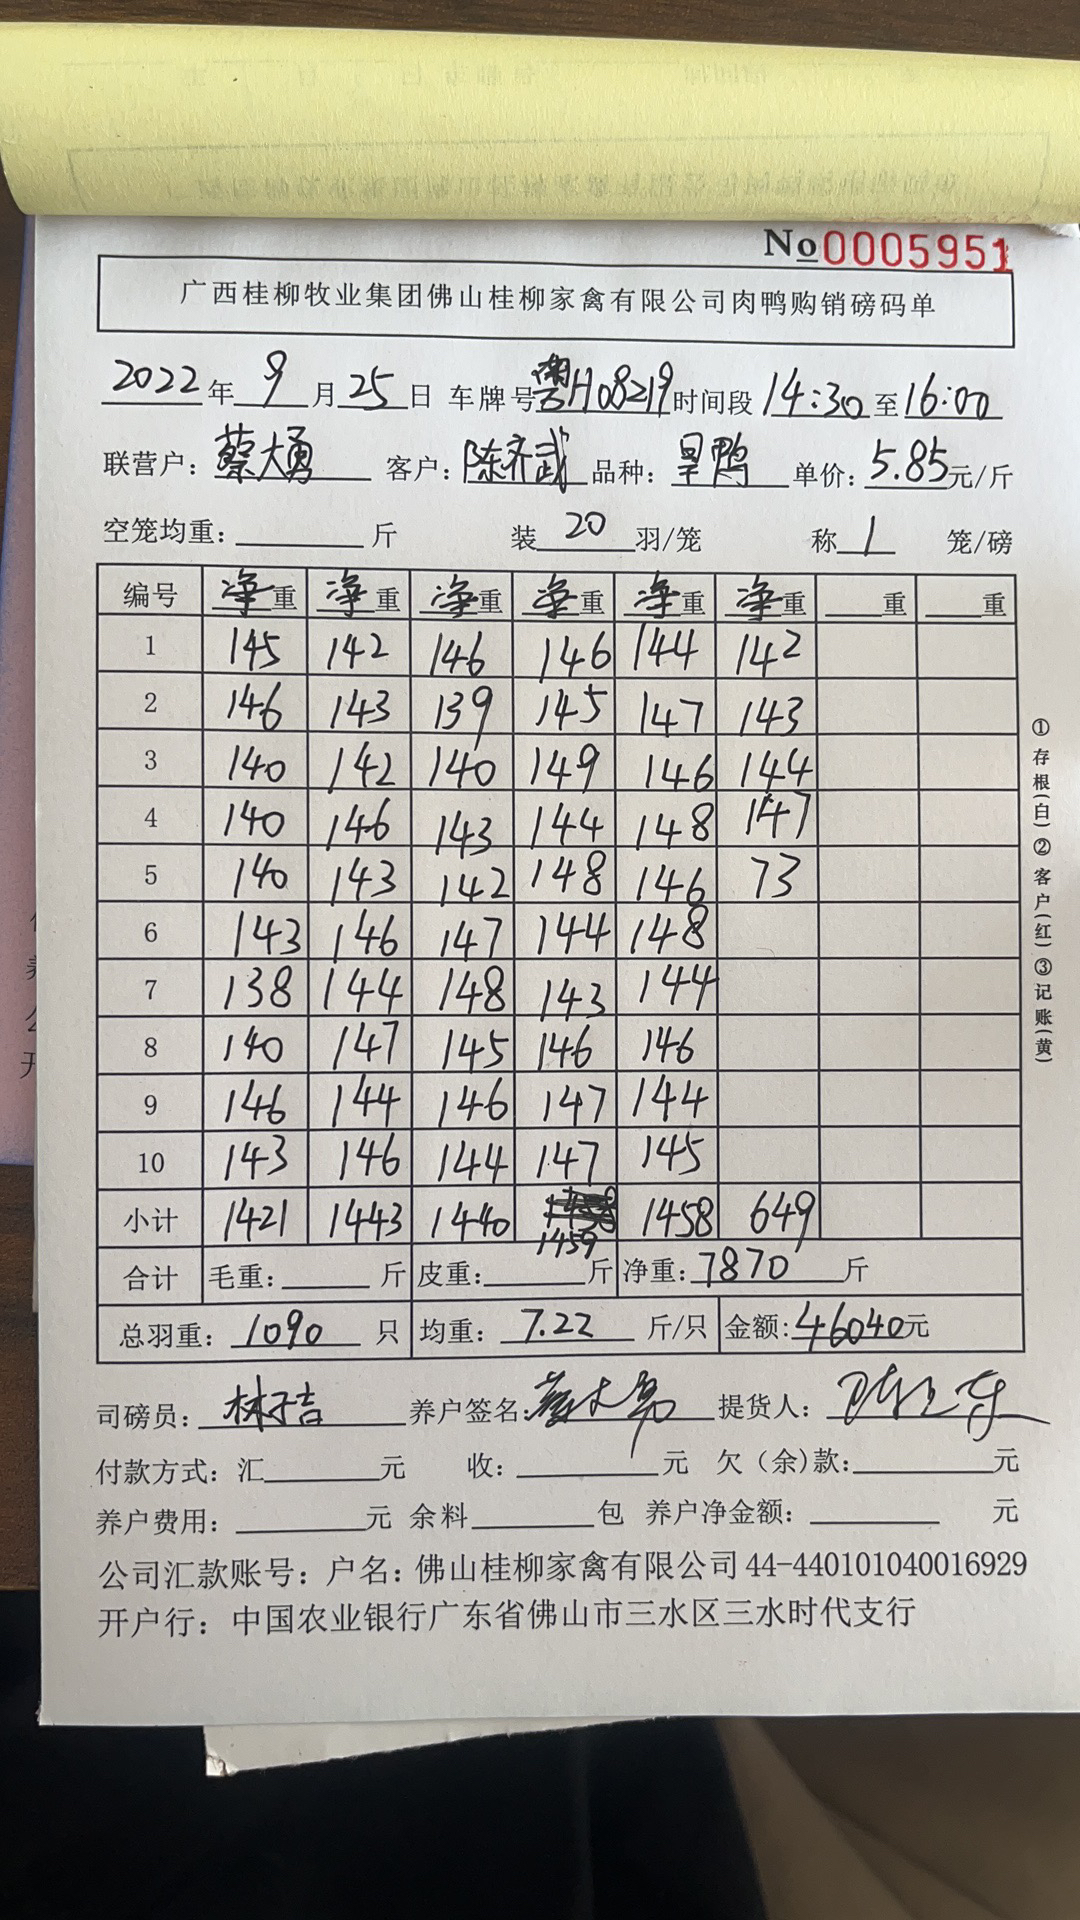 No 0005951
广西桂柳牧业集团佛山桂柳家禽有限公司肉鸭购销磅码单
2022年9月25日 车牌号粤H08219时间段14:30至16:00
联营户：蔡大勇 客户：陈齐武 品种：旱鸭 单价：5.85元/斤
空笼均重：斤 装20羽/笼 称1笼/磅
编号 净重 净重 净重 净重 净重 净重 重 重
1 145 142 146 146 144 142
2 146 143 139 145 147 143
3 140 142 140 149 146 144
4 140 146 143 144 148 147
5 140 143 142 148 146 73
6 143 146 147 144 148
7 138 144 148 143 144
8 140 147 145 146 146
9 146 144 146 147 144
10 143 146 144 147 145
小计 1421 1443 1440 1459 1458 649
合计 毛重：斤 皮重：斤 净重：7870斤
总羽重：1090只 均重：7.22斤/只 金额：46040元
司磅员：林子吉 养户签名：蔡大勇 提货人：
付款方式：汇元 收：元 欠（余）款：元
养户费用：元 余料包 养户净金额：元
公司汇款账号：户名：佛山桂柳家禽有限公司44-440101040016929
开户行：中国农业银行广东省佛山市三水区三水时代支行
①存根（白）②客户（红）③记账（黄）